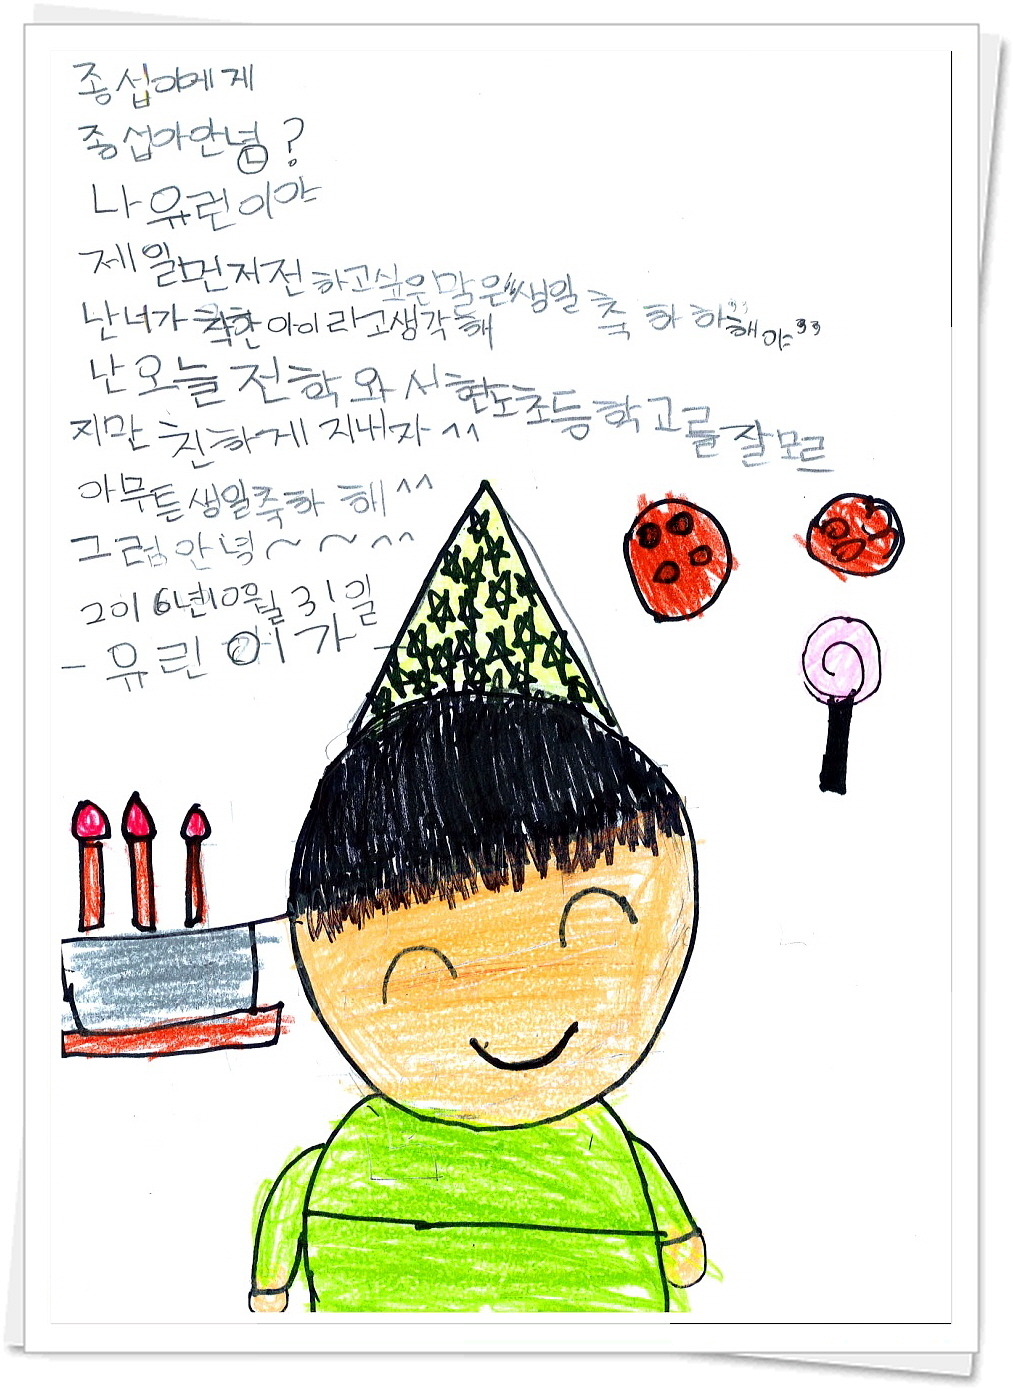 종섭이에게
종섭아안녕?
나 유린이야
제일먼저전하고싶은말은"생일축하하해야"
난너가 착한아이라고생각해
난 오늘 전학와서현도초등학고를잘모르
지만 친하게 지내자 ^^
아무튼생일축하 해 ^^
그럼안녕~ ~ ^^
2016년10월31일
- 유린이가 -